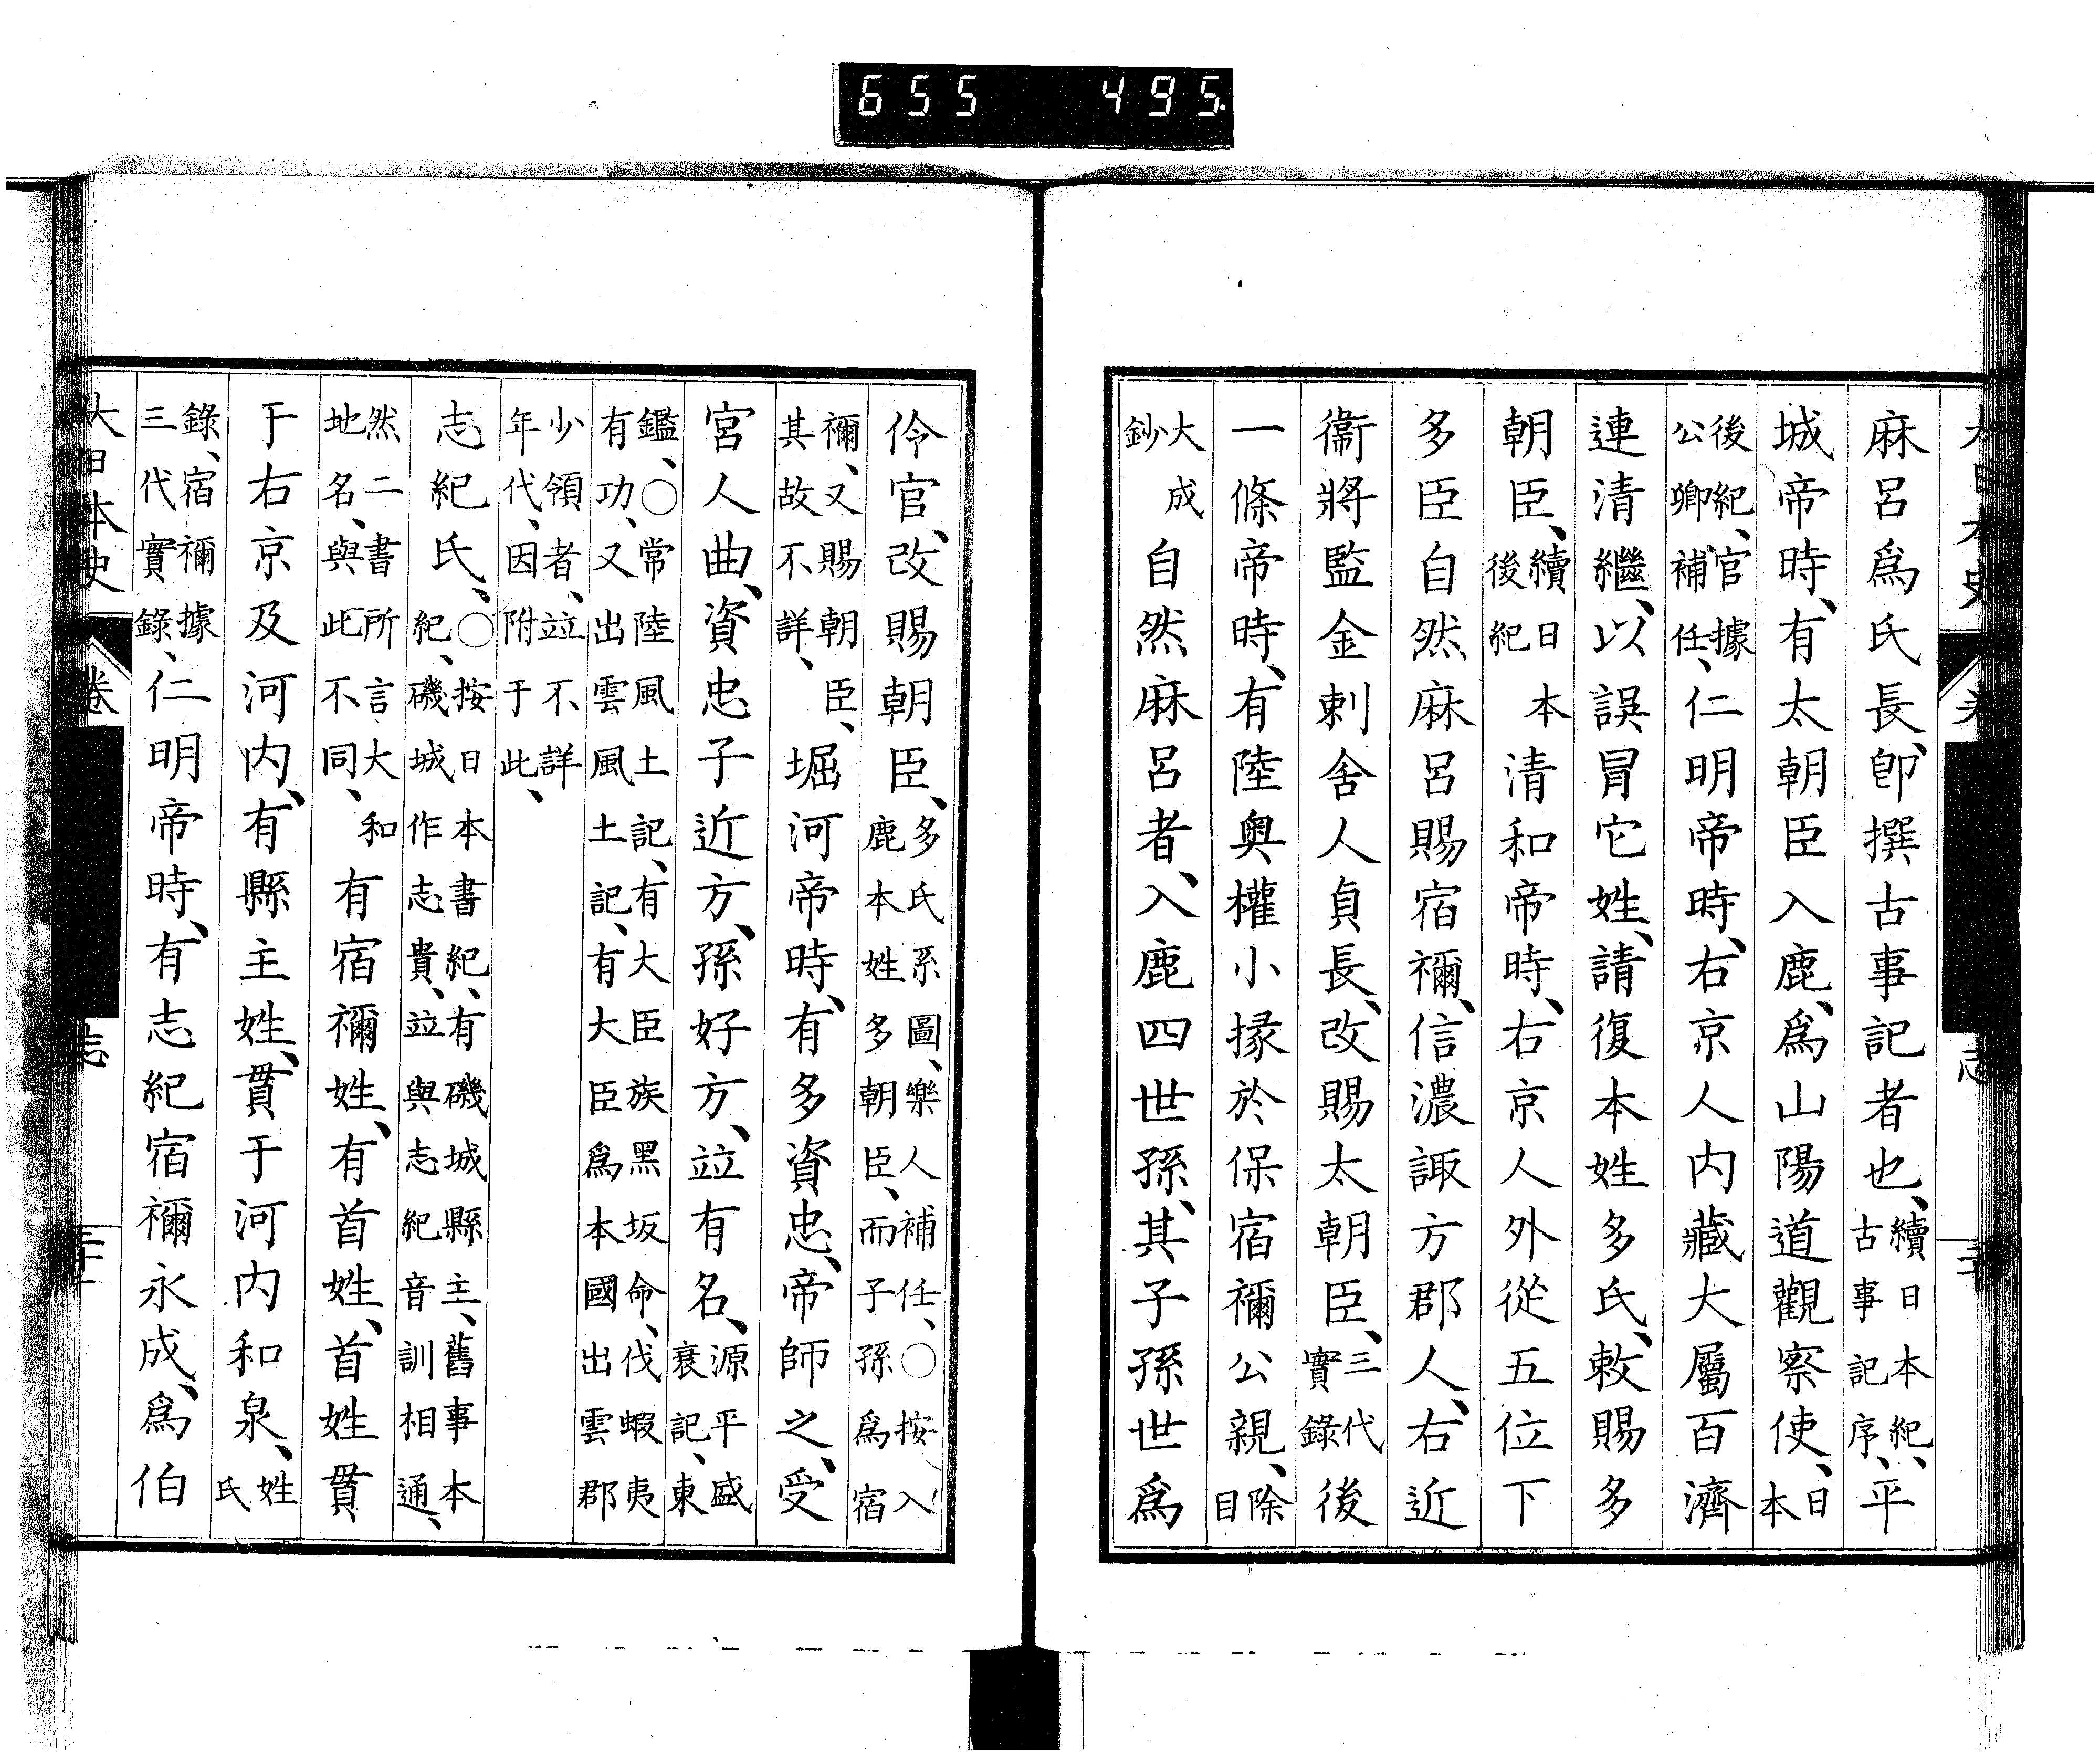 655 495
麻呂爲氏長、卽撰古事記者也、續日本紀、古事記序、平
城帝時、有太朝臣入鹿、爲山陽道觀察使、日本
後紀、官據公卿補任、仁明帝時、右京人内藏大屬百濟
連清繼、以誤冒它姓、請復本姓多氏、敕賜多
朝臣、續日本後紀清和帝時、右京人外從五位下
多臣自然麻呂賜宿禰、信濃諏方郡人、右近
衞將監金刺舍人貞長、改賜太朝臣、三代實錄後
一條帝時、有陸奧權小掾於保宿禰公親、除目
大成鈔自然麻呂者、入鹿四世孫、其子孫世爲
伶官、改賜朝臣、多氏系圖、樂人補任、○按入鹿本姓多朝臣、而子孫爲宿
禰、又賜朝臣、其故不詳、堀河帝時、有多資忠、帝師之、受
宮人曲、資忠子近方、孫好方、竝有名、源平盛衰記、東
鑑、○常陸風土記、有大臣族黑坂命、伐蝦夷有功、又出雲風土記、有大臣爲本國出雲郡
少領者、竝不詳年代、因附于此、
志紀氏、○按日本書紀、有磯城縣主、舊事本紀、磯城作志貴、竝與志紀音訓相通、
然二書所言、大和地名、與此不同、有宿禰姓、有首姓、首姓貫
于右京及河内、有縣主姓、貫于河内和泉、姓氏
錄、宿禰據三代實錄、仁明帝時、有志紀宿禰永成、爲伯
大日本史 卷 志